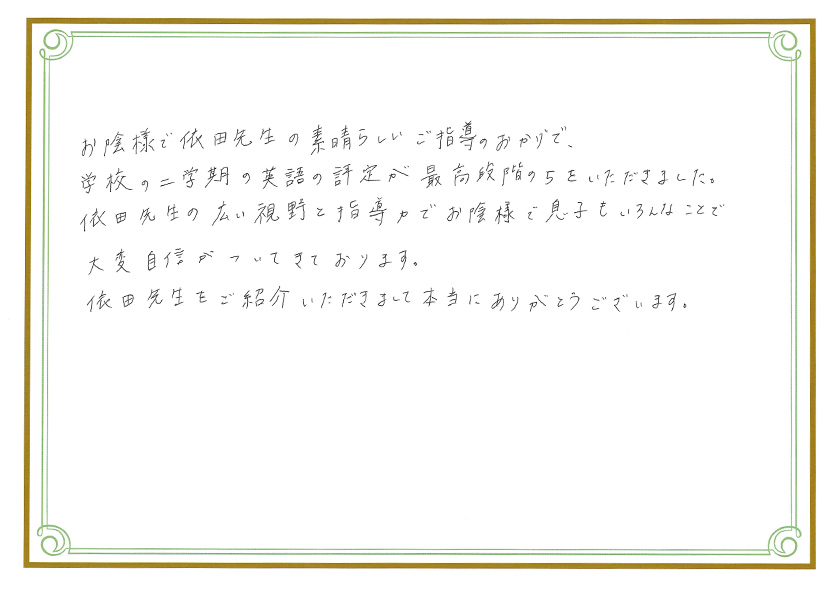 お陰様で依田先生の素晴らしいご指導のおかげで、
学校の二学期の英語の評定が最高段階の5をいただきました。
依田先生の広い視野と指導力でお陰様で息子もいろんなことで
大変自信がついてきております。
依田先生をご紹介いただきまして本当にありがとうございます。